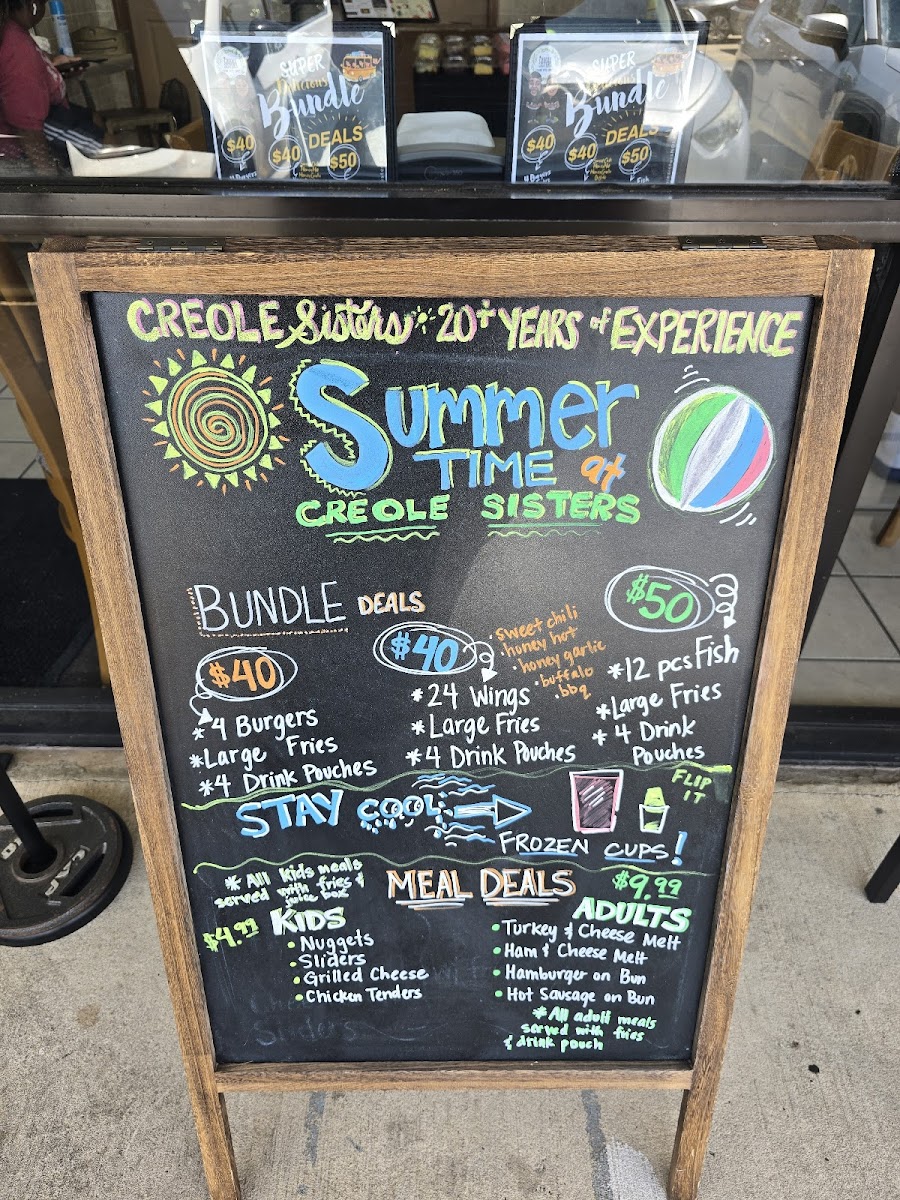 SUPER
Delicious
Bundle
DEALS
$40
$40
$50
SUPER
Delicious
Bundle
DEALS
$40
$40
$50
CREOLE Sisters 20+ YEARS of EXPERIENCE
Summer
TIME at
CREOLE SISTERS
BUNDLE DEALS
$40
*4 Burgers
*Large Fries
*4 Drink Pouches
$40
• sweet chili
• honey hot
• honey garlic
• buffalo
• bbq
*24 Wings
*Large Fries
*4 Drink Pouches
$50
*12 pcs Fish
*Large Fries
* 4 Drink
Pouches
STAY COOL
FROZEN CUPS!
FLIP
IT
MEAL DEALS
* All kids meals
served with fries &
juice box
$4.99 KIDS
• Nuggets
• Sliders
• Grilled Cheese
• Chicken Tenders
$9.99
ADULTS
• Turkey & Cheese Melt
• Ham & Cheese Melt
• Hamburger on Bun
• Hot Sausage on Bun
* All adult meals
served with fries
& drink pouch